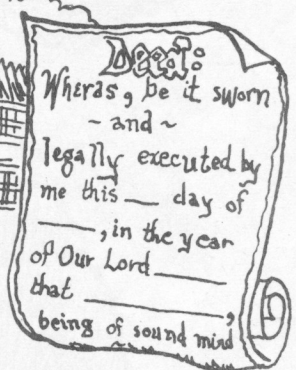 Deed:
Wheras, be it sworn
~ and ~
legally executed by
me this ___ day of
_____, in the year
of Our Lord _____
that __________,
being of sound mind